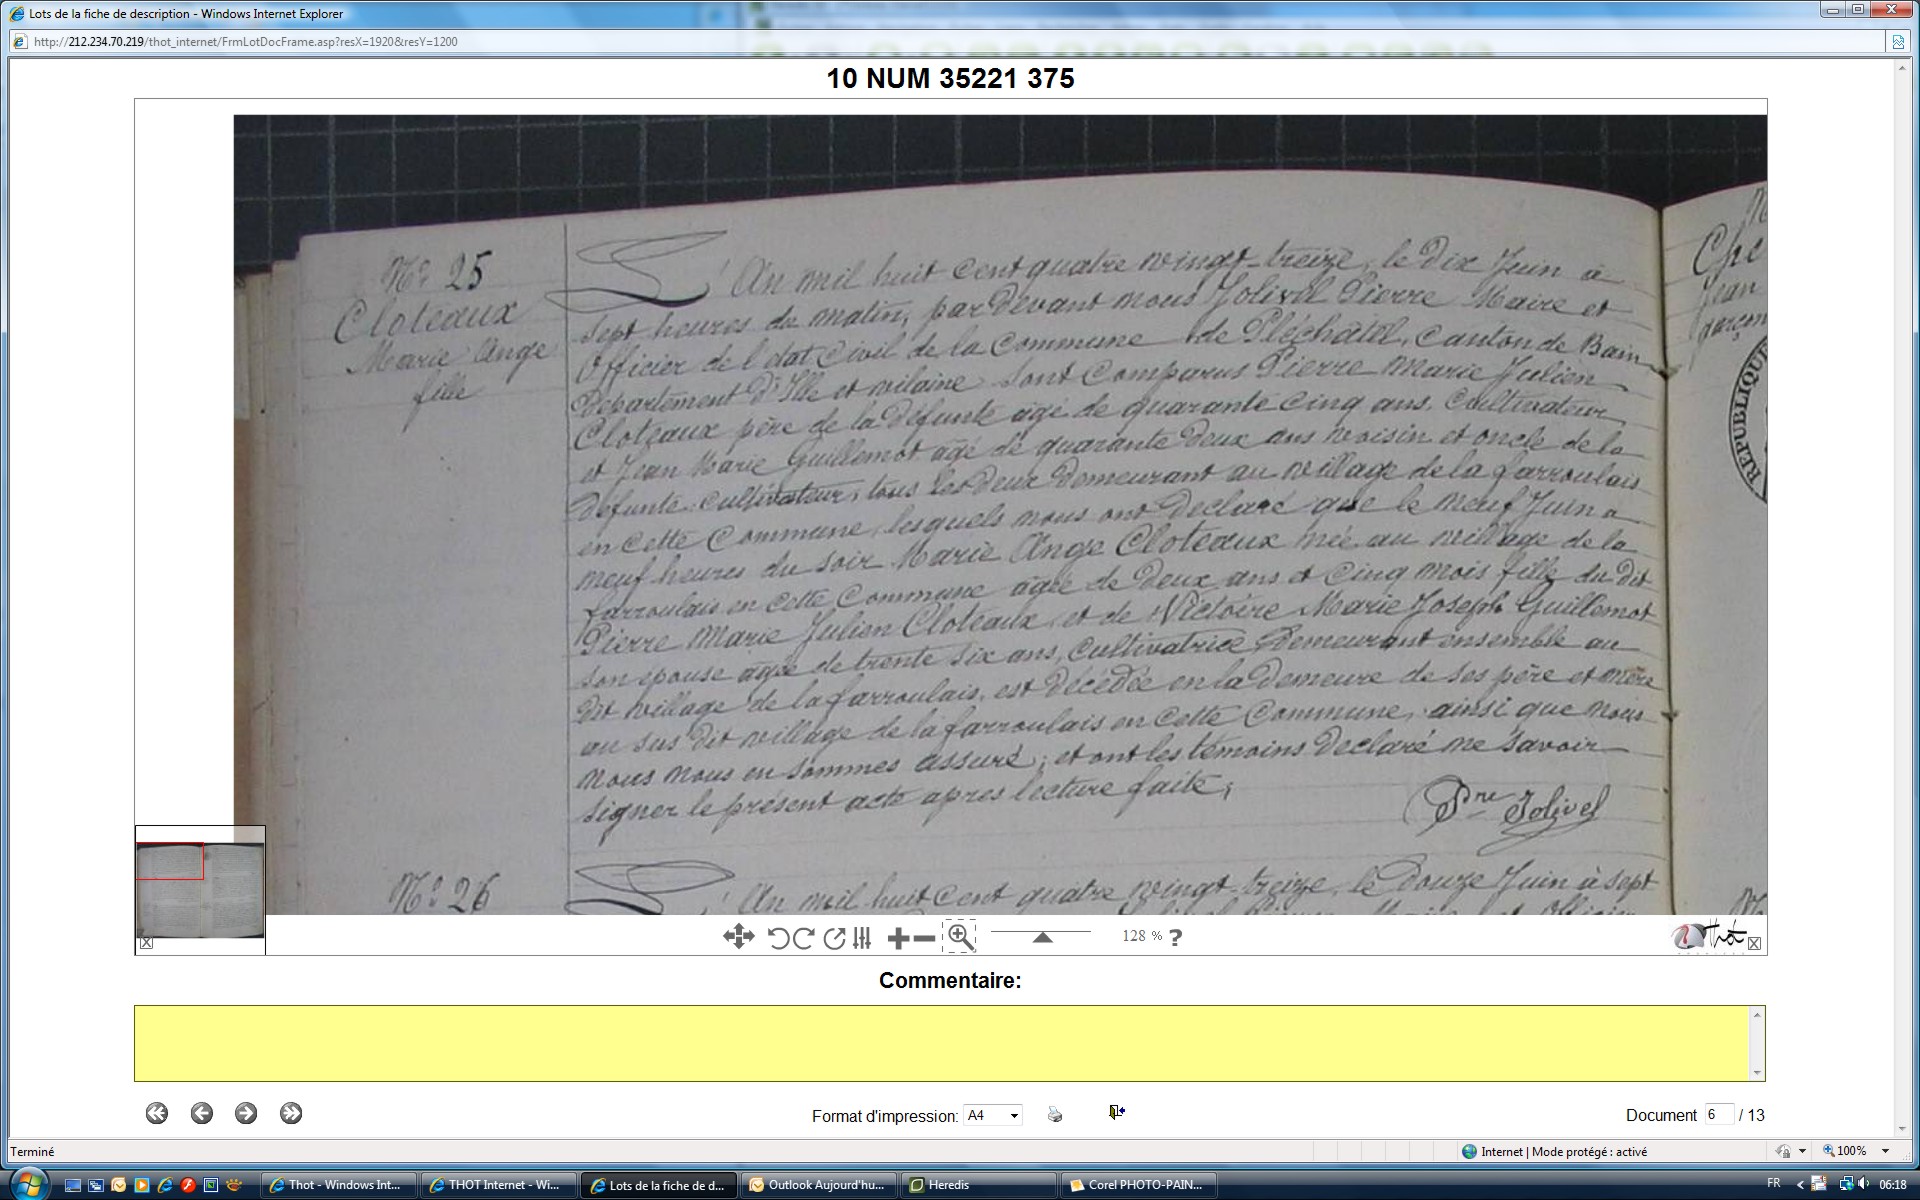 Lots de la fiche de description - Windows Internet Explorer
http://212.234.70.219/thot_internet/FrmLotDocFrame.asp?resX=1920&resY=1200
10 NUM 35221 375
N° 25
Cloteaux
Marie Ange
fille
L'An mil huit cent quatre vingt-treize, le dix Juin à
sept heures du matin, par devant nous Jolivel Pierre Maire et
Officier de l'état Civil de la Commune de Pléchâtel, Canton de Bain
Département d'Ille et vilaine sont Comparus Pierre Marie Julien
Cloteaux père de la défunte âgé de quarante cinq ans, Cultivateur
et Jean Marie Guillemot âgé de quarante deux ans voisin et oncle de la
défunte cultivateur, tous les deux demeurant au village de la farroulais
en Cette Commune, lesquels nous ont déclaré que le neuf Juin à
neuf heures du soir Marie Ange Cloteaux née au village de la
farroulais en Cette Commune âgée de deux ans et cinq mois fille du dit
Pierre Marie Julien Cloteaux, et de Victoire Marie Joseph Guillemot
son épouse âgée de trente six ans, Cultivatrice demeurant ensemble au
dit village de la farroulais, est décédée en la demeure de ses père et mère
au sus dit village de la farroulais en Cette Commune, ainsi que nous
nous nous en sommes assuré; et ont les témoins déclaré ne savoir
signer le présent acte après lecture faite;
Pre Jolivel
N° 26
L'An mil huit Cent quatre vingt-treize, le douze Juin à sept
Che
Jean
garçon
REPUBLIQUE
128 % ?
Thot
Commentaire:
Format d'impression: A4
Document 6 / 13
Terminé
Internet | Mode protégé : activé
100%
Thot - Windows Int...
THOT Internet - Wi...
Lots de la fiche de d...
Outlook Aujourd'hu...
Heredis
Corel PHOTO-PAIN...
FR
06:18